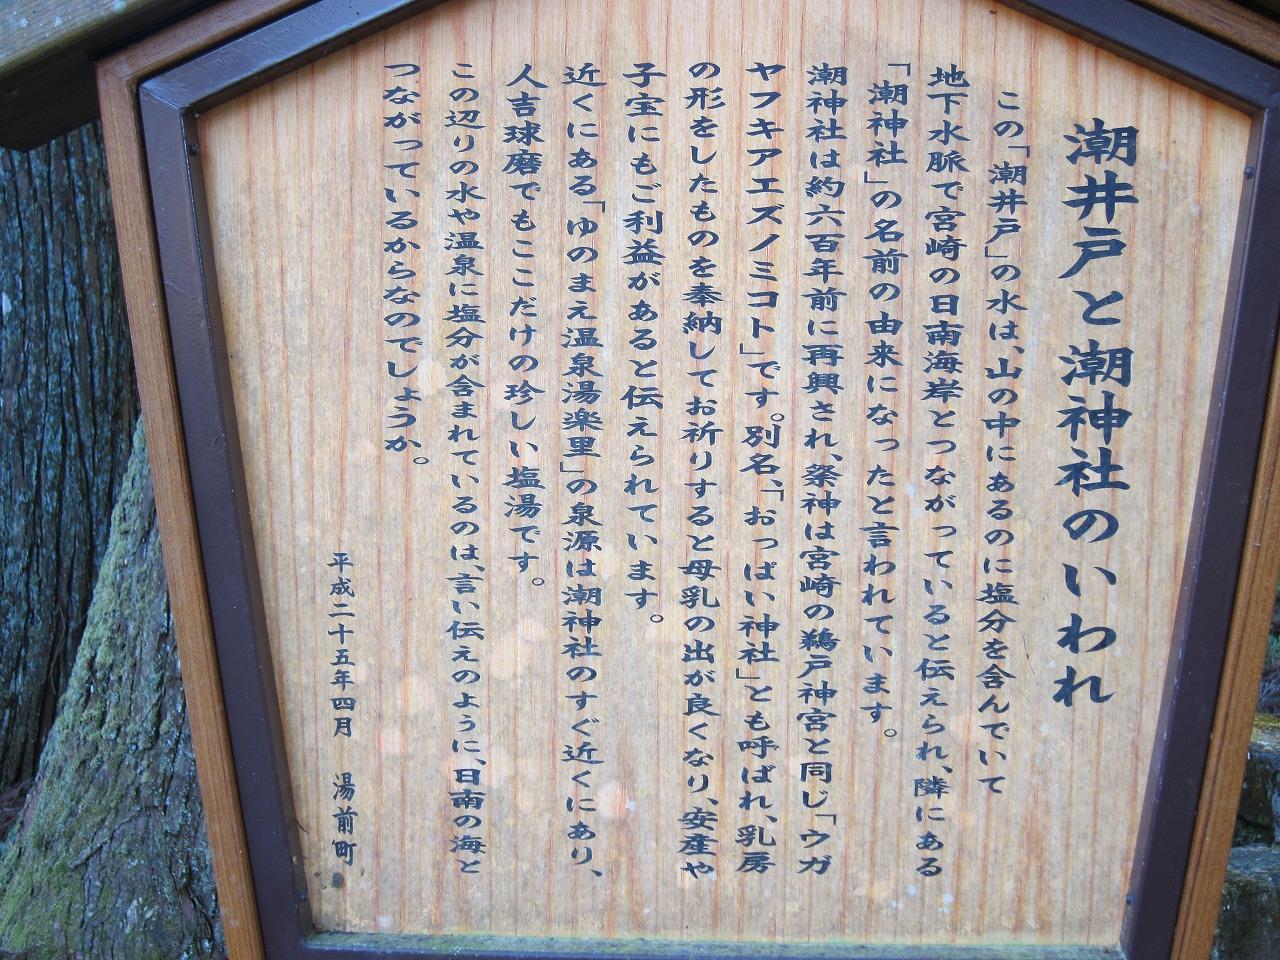 潮井戸と潮神社のいわれ
この「潮井戸」の水は、山の中にあるのに塩分を含んでいて
地下水脈で宮崎の日南海岸とつながっていると伝えられ、隣にある
「潮神社」の名前の由来になったと言われています。
潮神社は約六百年前に再興され、祭神は宮崎の鵜戸神宮と同じ「ウガ
ヤフキアエズノミコト」です。別名、「おっぱい神社」とも呼ばれ、乳房
の形をしたものを奉納してお祈りすると母乳の出が良くなり、安産や
子宝にもご利益があると伝えられています。
近くにある「ゆのまえ温泉湯楽里」の泉源は潮神社のすぐ近くにあり、
人吉球磨でもここだけの珍しい塩湯です。
この辺りの水や温泉に塩分が含まれているのは、言い伝えのように、日南の海と
つながっているからなのでしょうか。
平成二十五年四月 湯前町